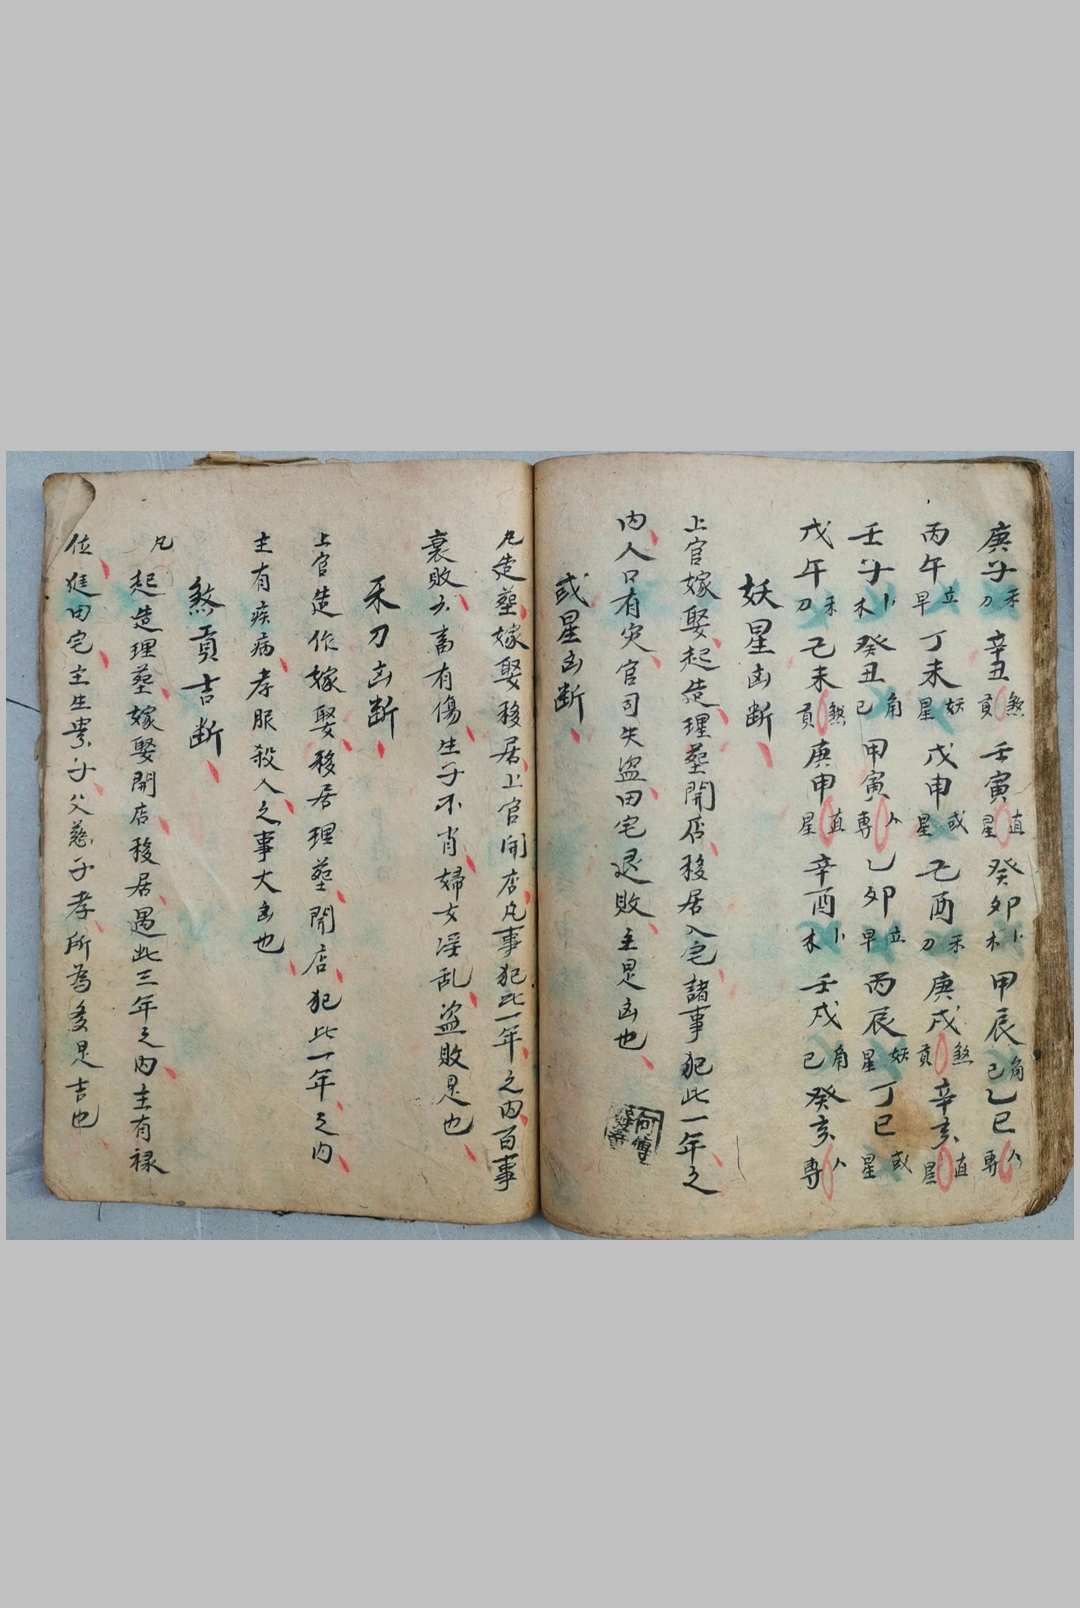 庚子禾刀 辛丑煞貢 壬寅直星 癸卯卜木 甲辰角己 乙巳人専
丙午立早 丁未妖星 戊申或星 己酉禾刀 庚戌煞貢 辛亥直星
壬子卜木 癸丑角己 甲寅人専 乙卯立早 丙辰妖星 丁巳或星
戊午禾刀 己未煞貢 庚申直星 辛酉卜木 壬戌角己 癸亥人専
妖星凶断
上官嫁娶起造理塟開店移居入宅諸事犯此一年之
内人口有灾官司失盗田宅退敗主是凶也
或星凶断
凡造塟嫁娶移居上官開店凡事犯此一年之内百事
衰敗六畜有傷生子不肖婦女淫乱盗敗是也
禾刀凶断
上官造作嫁娶移居理塟開店犯此一年之内
主有疾病孝服殺人之事大凶也
煞貢吉断
凡起造理塟嫁娶開店移居遇此三年之内主有禄
位進田宅主生貴子父慈子孝所為多是吉也